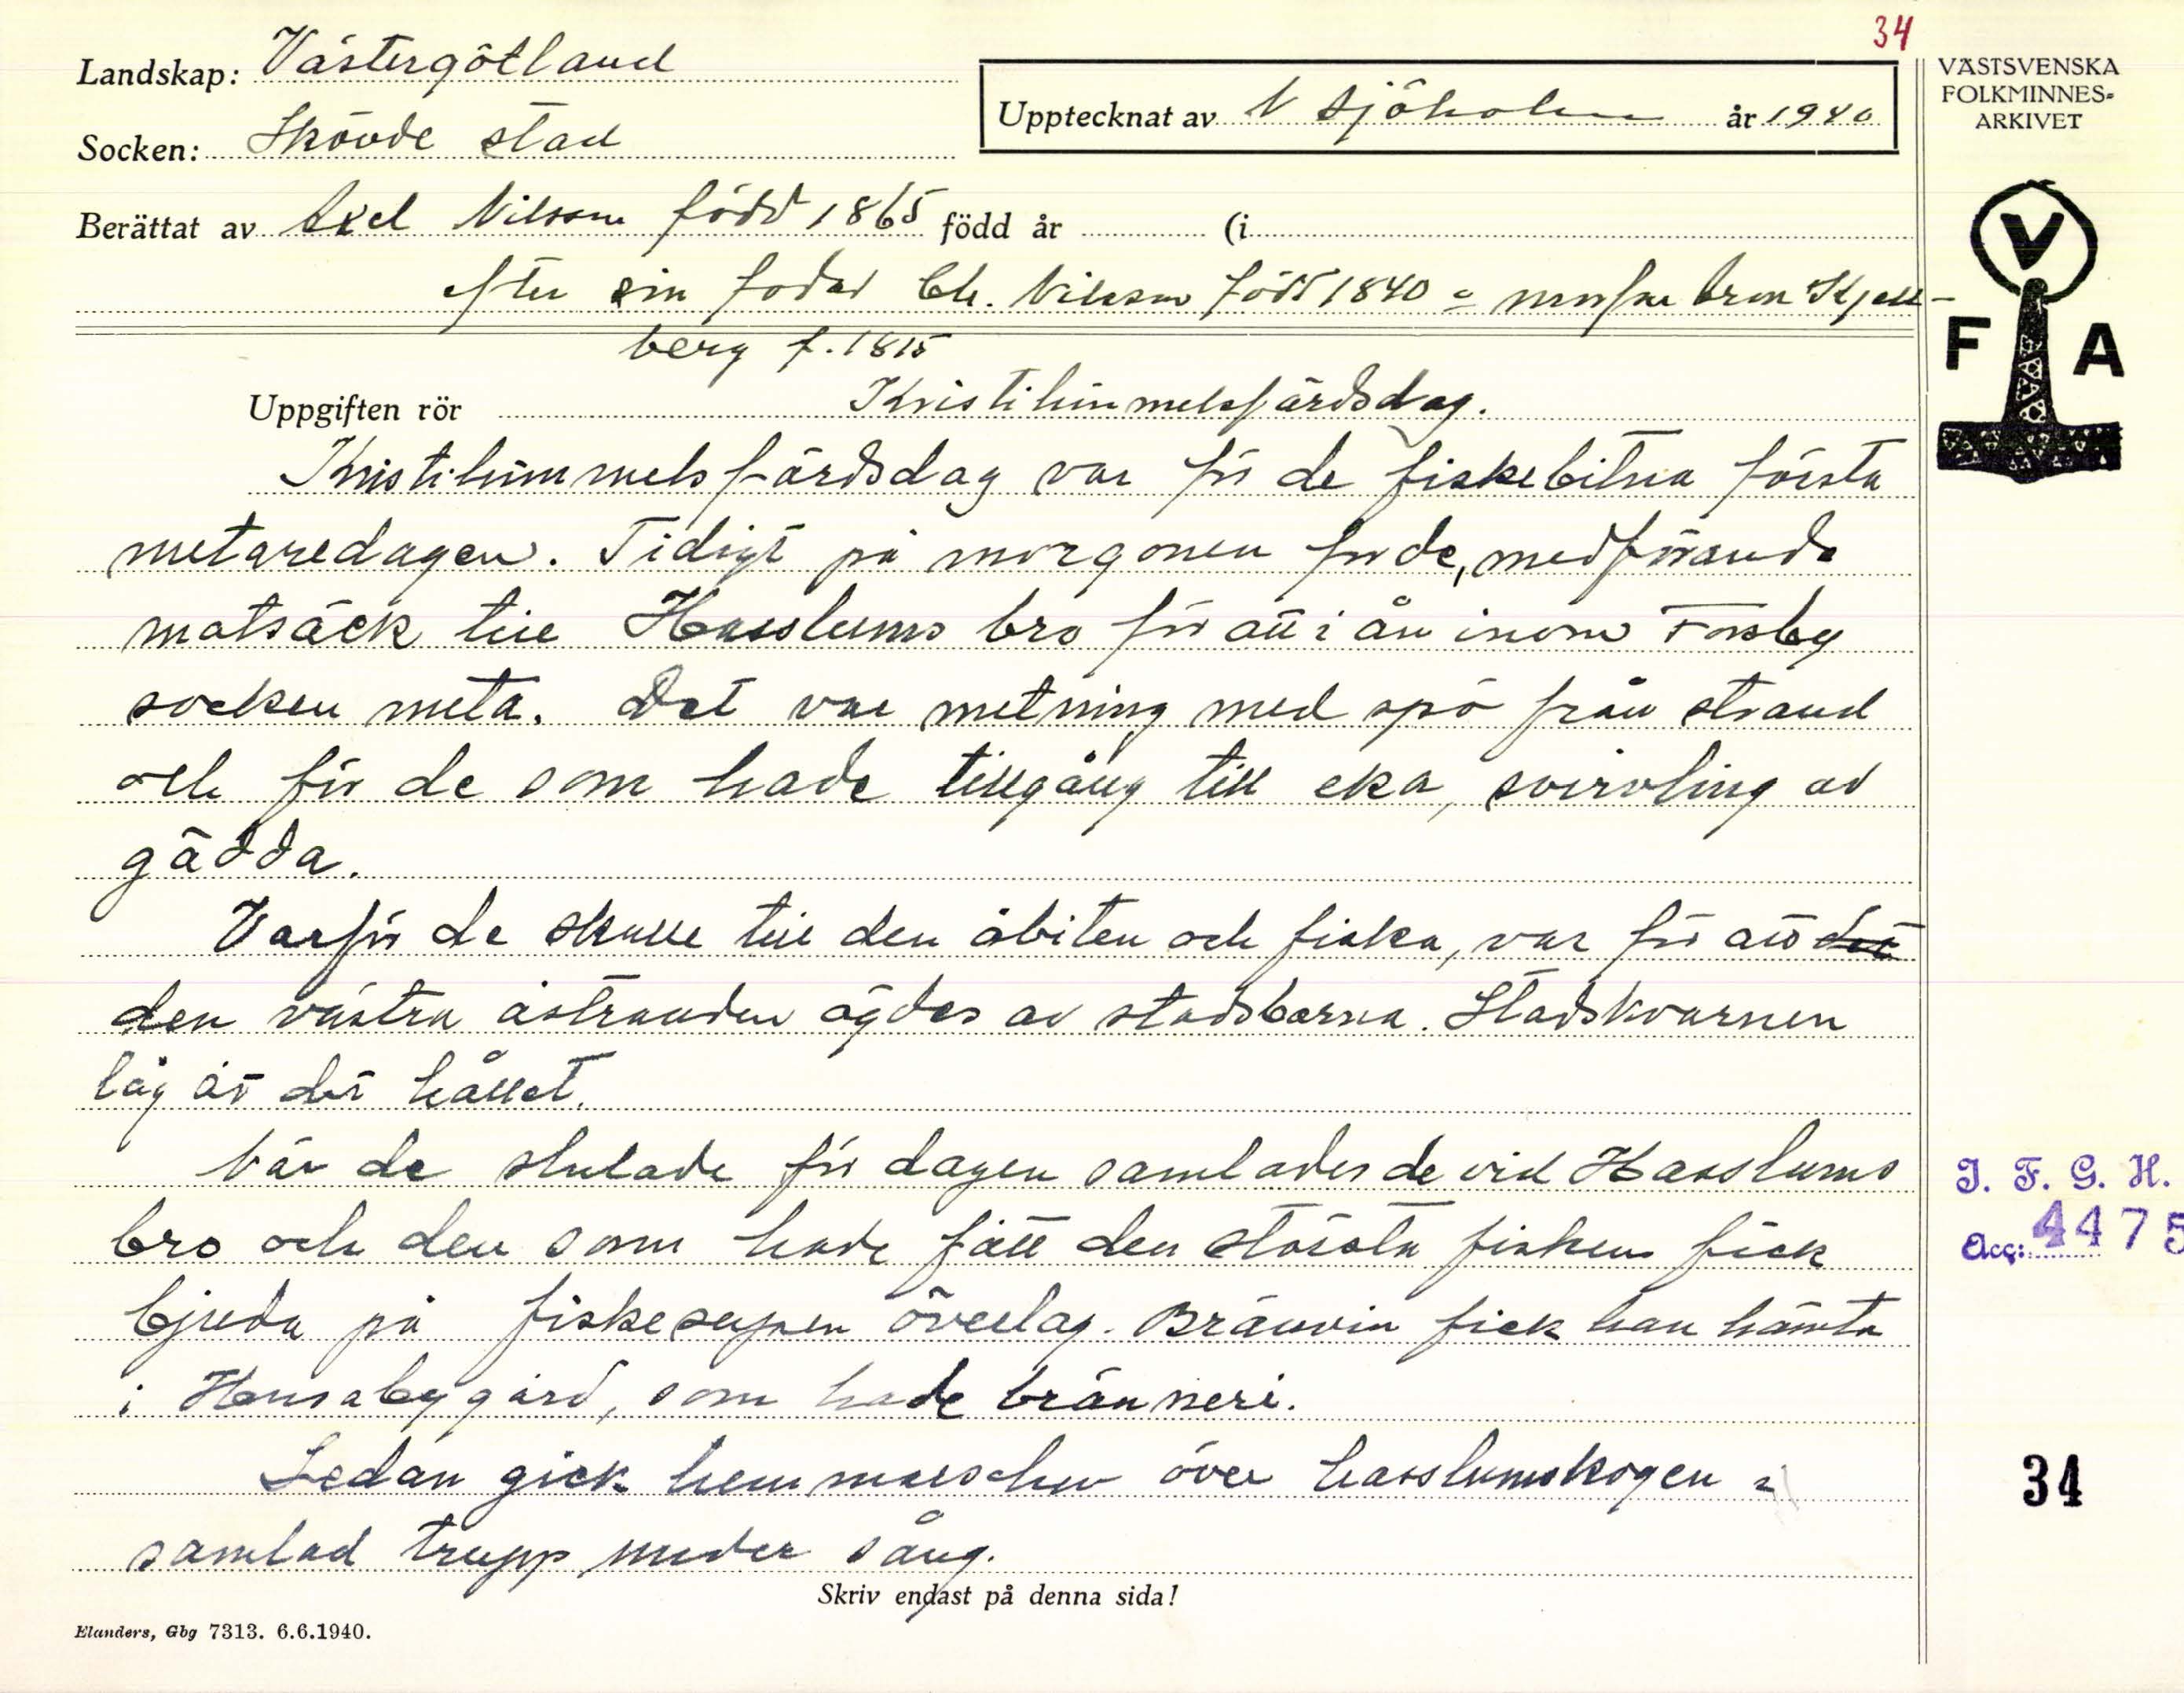 34
Landskap: Västergötland
Socken: Skövde stad
Upptecknat av N Sjöholm år 1940
VÄSTSVENSKA
FOLKMINNES-
ARKIVET
V
F A
Berättat av Axel Nilsson född 1865 född år (i
efter sin fader Ch. Nilsson född 1840 o morfar Kjell-
berg f. 1815
Uppgiften rör Kristihimmelsfärdsdag.
Kristihimmelsfärdsdag var för de fiskebitna första
metaredagen. Tidigt på morgonen for de, medförande
matsäck till Hasslums bro för att i ån inom Forsby
socken meta. Det var metning med spö från strand
och för de som hade tillgång till eka, svirvling av
gädda.
Varför de skulle till den åbiten och fiska, var för att det
den västra åstranden ägdes av stadsborna. Stadskvarnen
låg åt det hållet.
När de slutade för dagen samlades de vid Hasslums
bro och den som hade fått den största fisken fick
bjuda på fiskesupen överlag. Brännvin fick han hämta
i Horsabygård, som hade bränneri.
Sedan gick hemmarschen över hasslumskogen i
samlad trupp under sång.
Skriv endast på denna sida!
Elanders, Gbg 7313. 6.6.1940.
I. F. G. H.
Acc: 4475
34